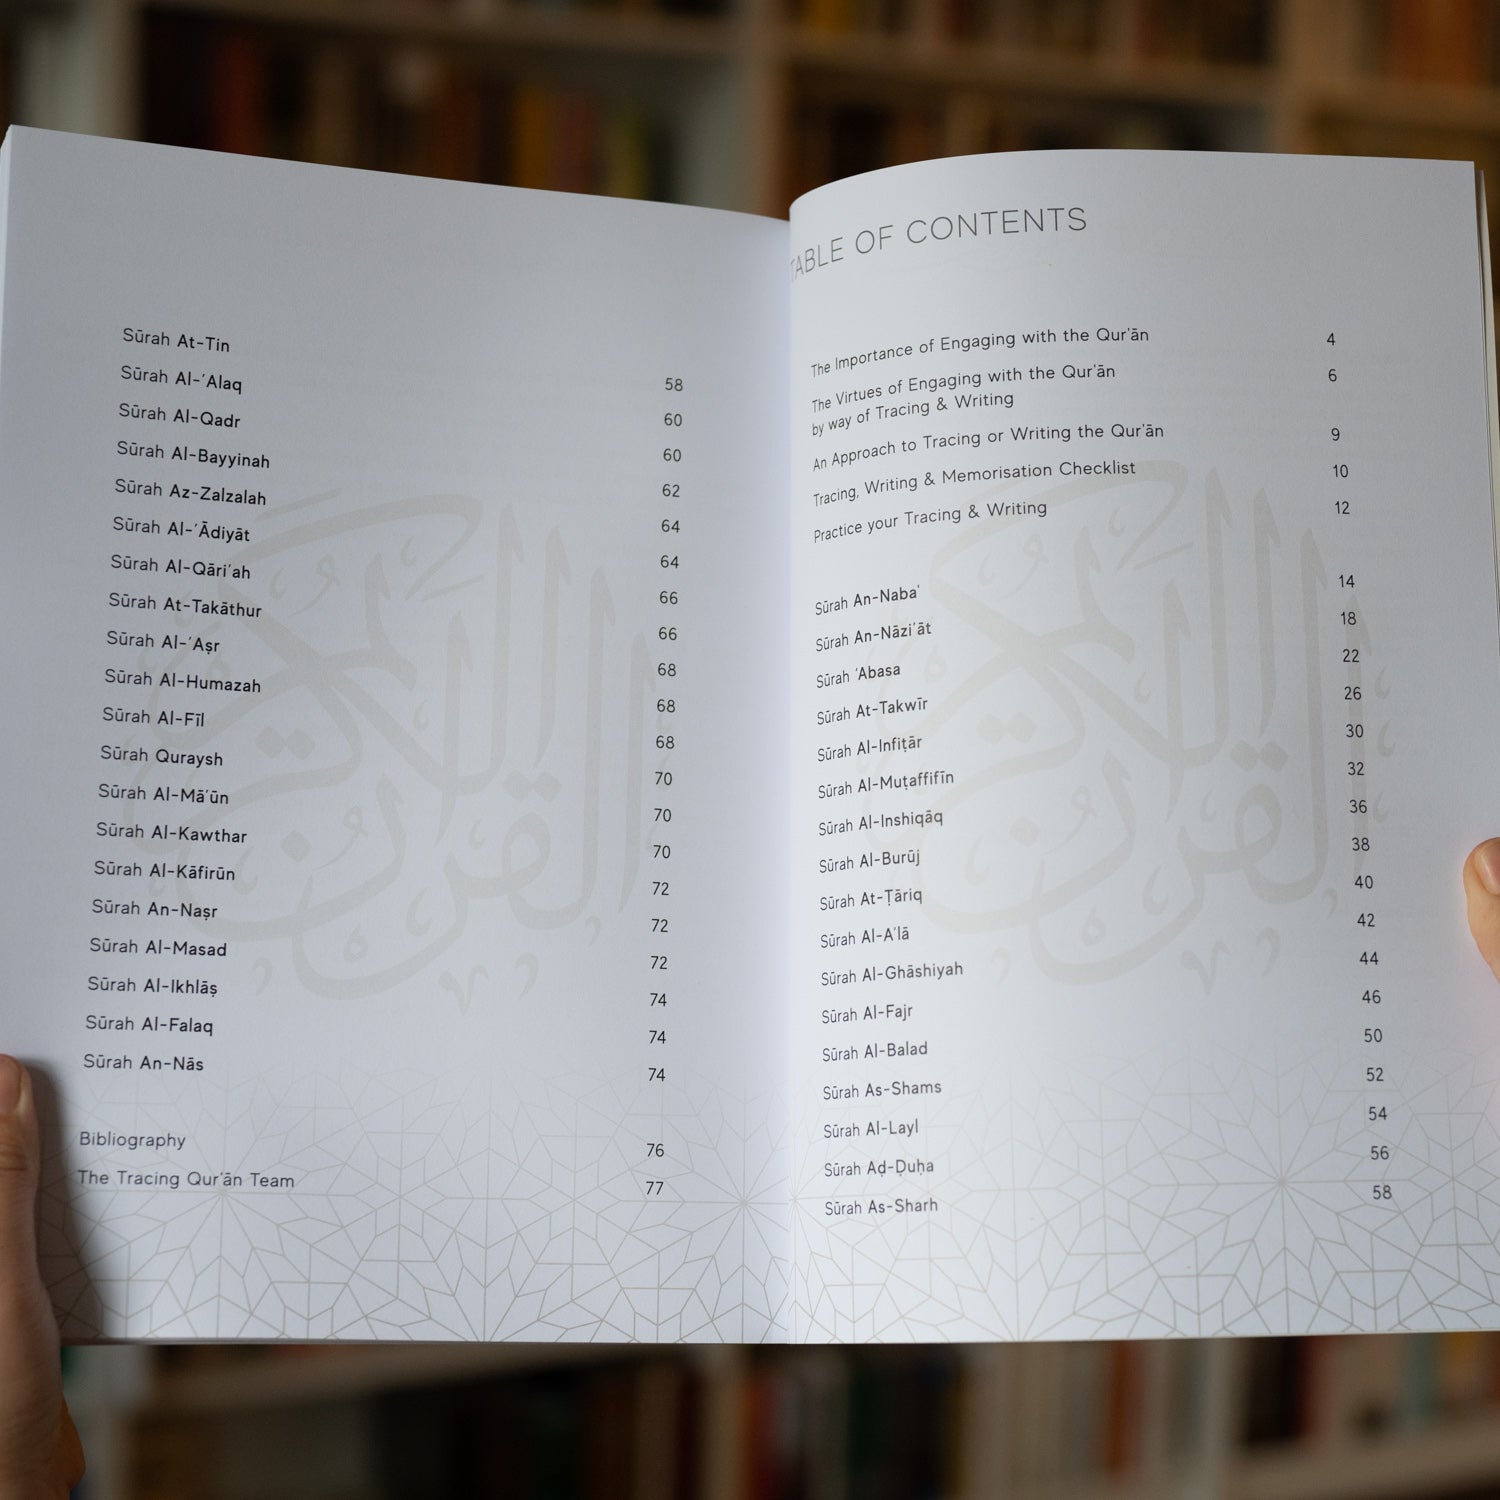 TABLE OF CONTENTS
The Importance of Engaging with the Qur'ān 4
The Virtues of Engaging with the Qur'ān 6
by way of Tracing & Writing
An Approach to Tracing or Writing the Qur'ān 9
Tracing, Writing & Memorisation Checklist 10
Practice your Tracing & Writing 12
Sūrah An-Naba' 14
Sūrah An-Nāzi'āt 18
Sūrah 'Abasa 22
Sūrah At-Takwīr 26
Sūrah Al-Infiṭār 30
Sūrah Al-Muṭaffifīn 32
Sūrah Al-Inshiqāq 36
Sūrah Al-Burūj 38
Sūrah At-Ṭāriq 40
Sūrah Al-A'lā 42
Sūrah Al-Ghāshiyah 44
Sūrah Al-Fajr 46
Sūrah Al-Balad 50
Sūrah As-Shams 52
Sūrah Al-Layl 54
Sūrah Aḍ-Ḍuḥa 56
Sūrah As-Sharh 58
القرآن الكريم
Sūrah At-Tin 58
Sūrah Al-'Alaq 60
Sūrah Al-Qadr 60
Sūrah Al-Bayyinah 62
Sūrah Az-Zalzalah 64
Sūrah Al-'Ādiyāt 64
Sūrah Al-Qāri'ah 66
Sūrah At-Takāthur 66
Sūrah Al-'Aṣr 68
Sūrah Al-Humazah 68
Sūrah Al-Fīl 68
Sūrah Quraysh 70
Sūrah Al-Mā'ūn 70
Sūrah Al-Kawthar 70
Sūrah Al-Kāfirūn 72
Sūrah An-Naṣr 72
Sūrah Al-Masad 72
Sūrah Al-Ikhlāṣ 74
Sūrah Al-Falaq 74
Sūrah An-Nās 74
Bibliography 76
The Tracing Qur'ān Team 77
القرآن الكريم